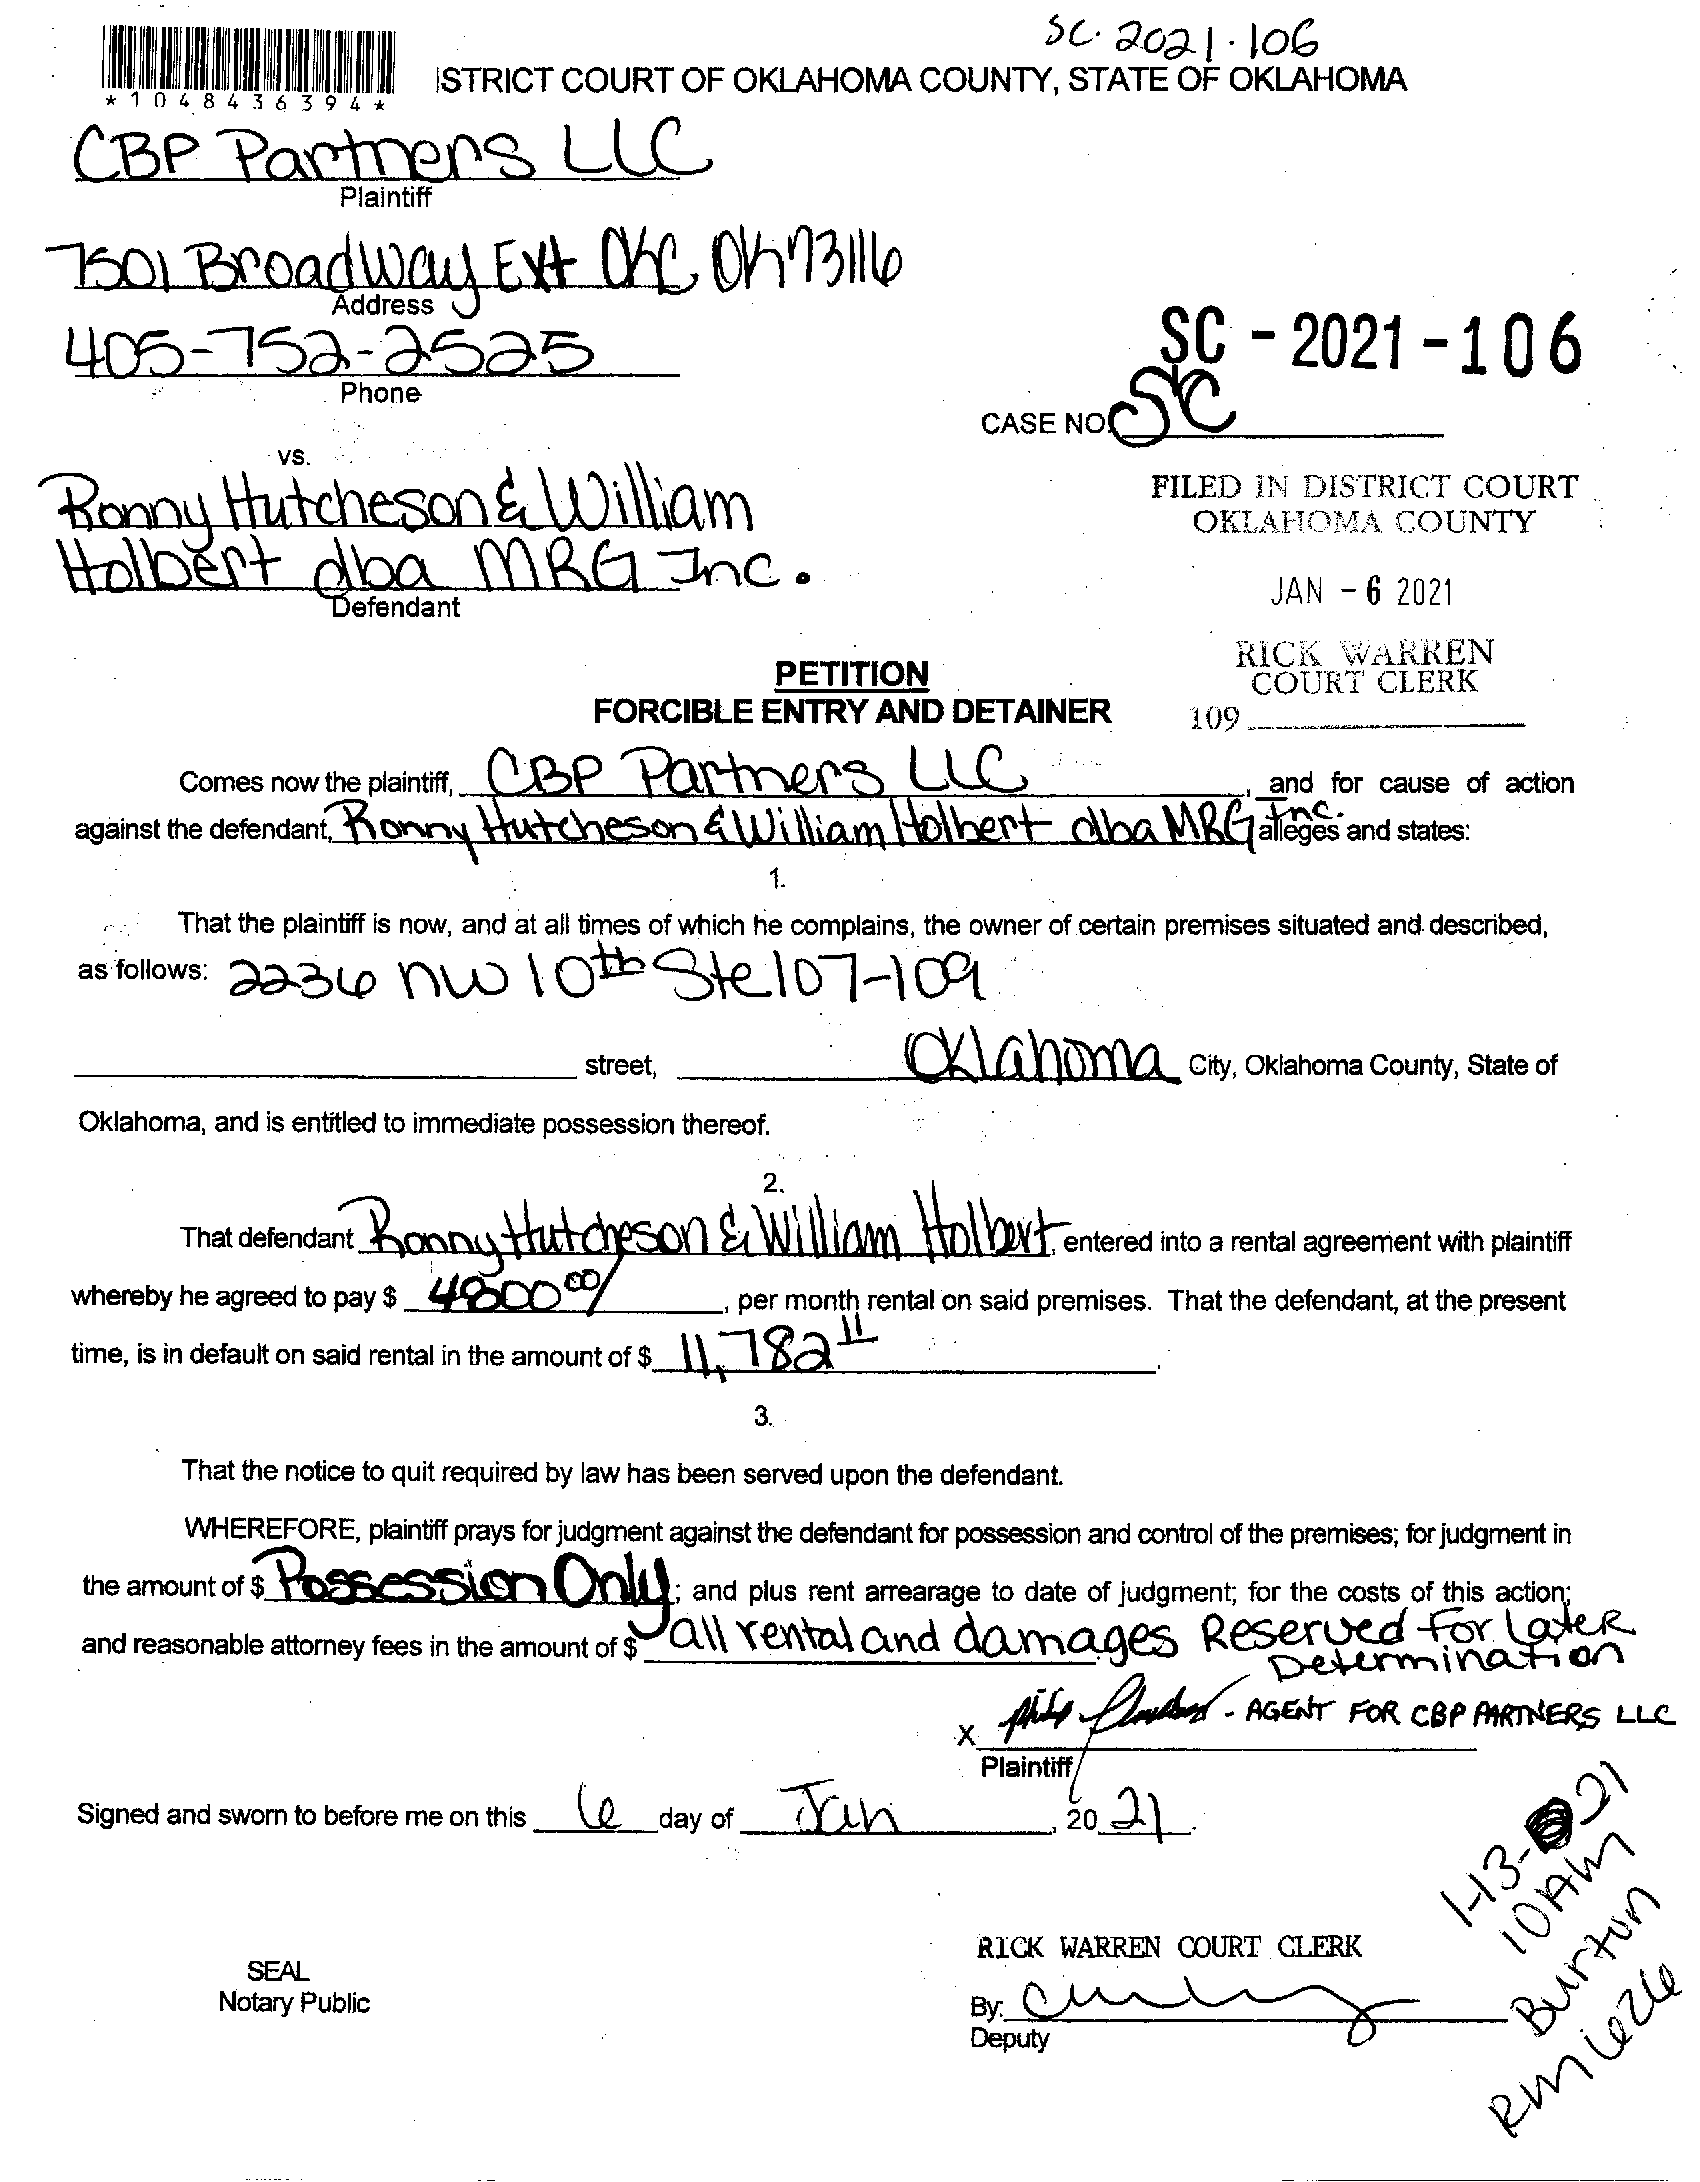 SC-2021-106
*1048436394*
ISTRICT COURT OF OKLAHOMA COUNTY, STATE OF OKLAHOMA
CBP Partners LLC
Plaintiff
7501 Broadway Ext OKC OK 73116
Address
405-752-2525
Phone
SC - 2021 - 106
CASE NO. SC
vs.
Ronny Hutcheson & William
Holbert dba MRG Inc.
Defendant
FILED IN DISTRICT COURT
OKLAHOMA COUNTY
JAN - 6 2021
RICK WARREN
COURT CLERK
109
PETITION
FORCIBLE ENTRY AND DETAINER
Comes now the plaintiff, CBP Partners LLC, and for cause of action
against the defendant, Ronny Hutcheson & William Holbert dba MRG Inc. alleges and states:
1.
That the plaintiff is now, and at all times of which he complains, the owner of certain premises situated and described,
as follows: 2236 NW 10th Ste 107-109
street, Oklahoma City, Oklahoma County, State of
Oklahoma, and is entitled to immediate possession thereof.
2.
That defendant Ronny Hutcheson & William Holbert, entered into a rental agreement with plaintiff
whereby he agreed to pay $ 4800 00/, per month rental on said premises. That the defendant, at the present
time, is in default on said rental in the amount of $ 11,782 11.
3.
That the notice to quit required by law has been served upon the defendant.
WHEREFORE, plaintiff prays for judgment against the defendant for possession and control of the premises; for judgment in
the amount of $ Possession Only; and plus rent arrearage to date of judgment; for the costs of this action;
and reasonable attorney fees in the amount of $ all rental and damages Reserved For Later
Determination
X - AGENT FOR CBP PARTNERS LLC
Plaintiff
Signed and sworn to before me on this 6 day of Jan, 20 21.
1-13-21
10AM
Burton
RM 626
RICK WARREN COURT CLERK
SEAL
Notary Public
By:
Deputy